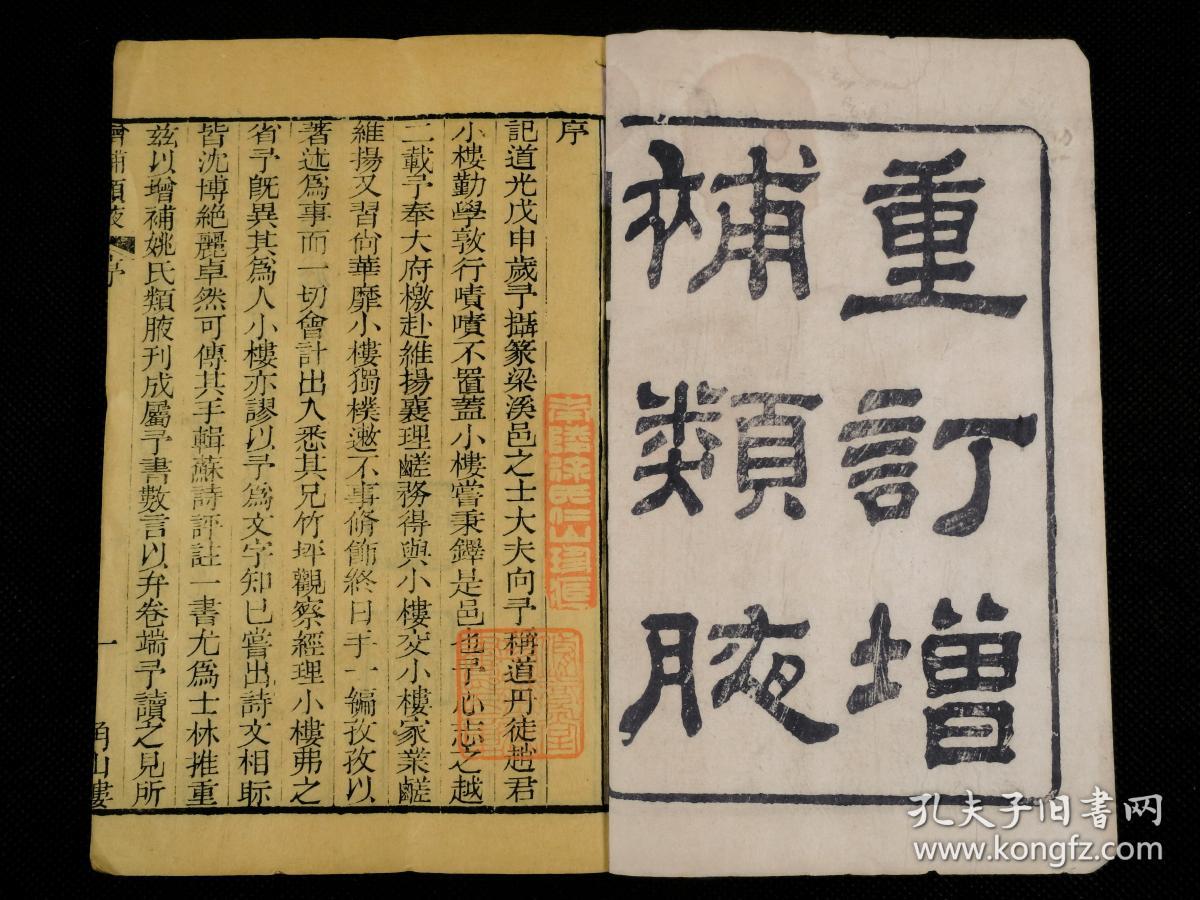 重訂增
補類腋
序
記道光戊申歲予攝篆梁溪邑之士大夫向予稱道丹徒趙君
小樓勤學敦行嘖嘖不置蓋小樓嘗秉鐸是邑也予心志之越
二載予奉大府檄赴維揚襄理鹺務得與小樓交小樓家業鹺
維揚又習尙華靡小樓獨樸遬不事脩飾終日手一編孜孜以
著述爲事而一切會計出入悉其兄竹坪觀察經理小樓弗之
省予旣異其爲人小樓亦謬以予爲文字知已嘗出詩文相眎
皆沈博絕麗卓然可傳其手輯蘇詩評註一書尤爲士林推重
兹以增補姚氏類腋刊成屬予書數言以弁卷端予讀之見所
增補類腋 序 一 角山樓
孔夫子旧书网
www.kongfz.com